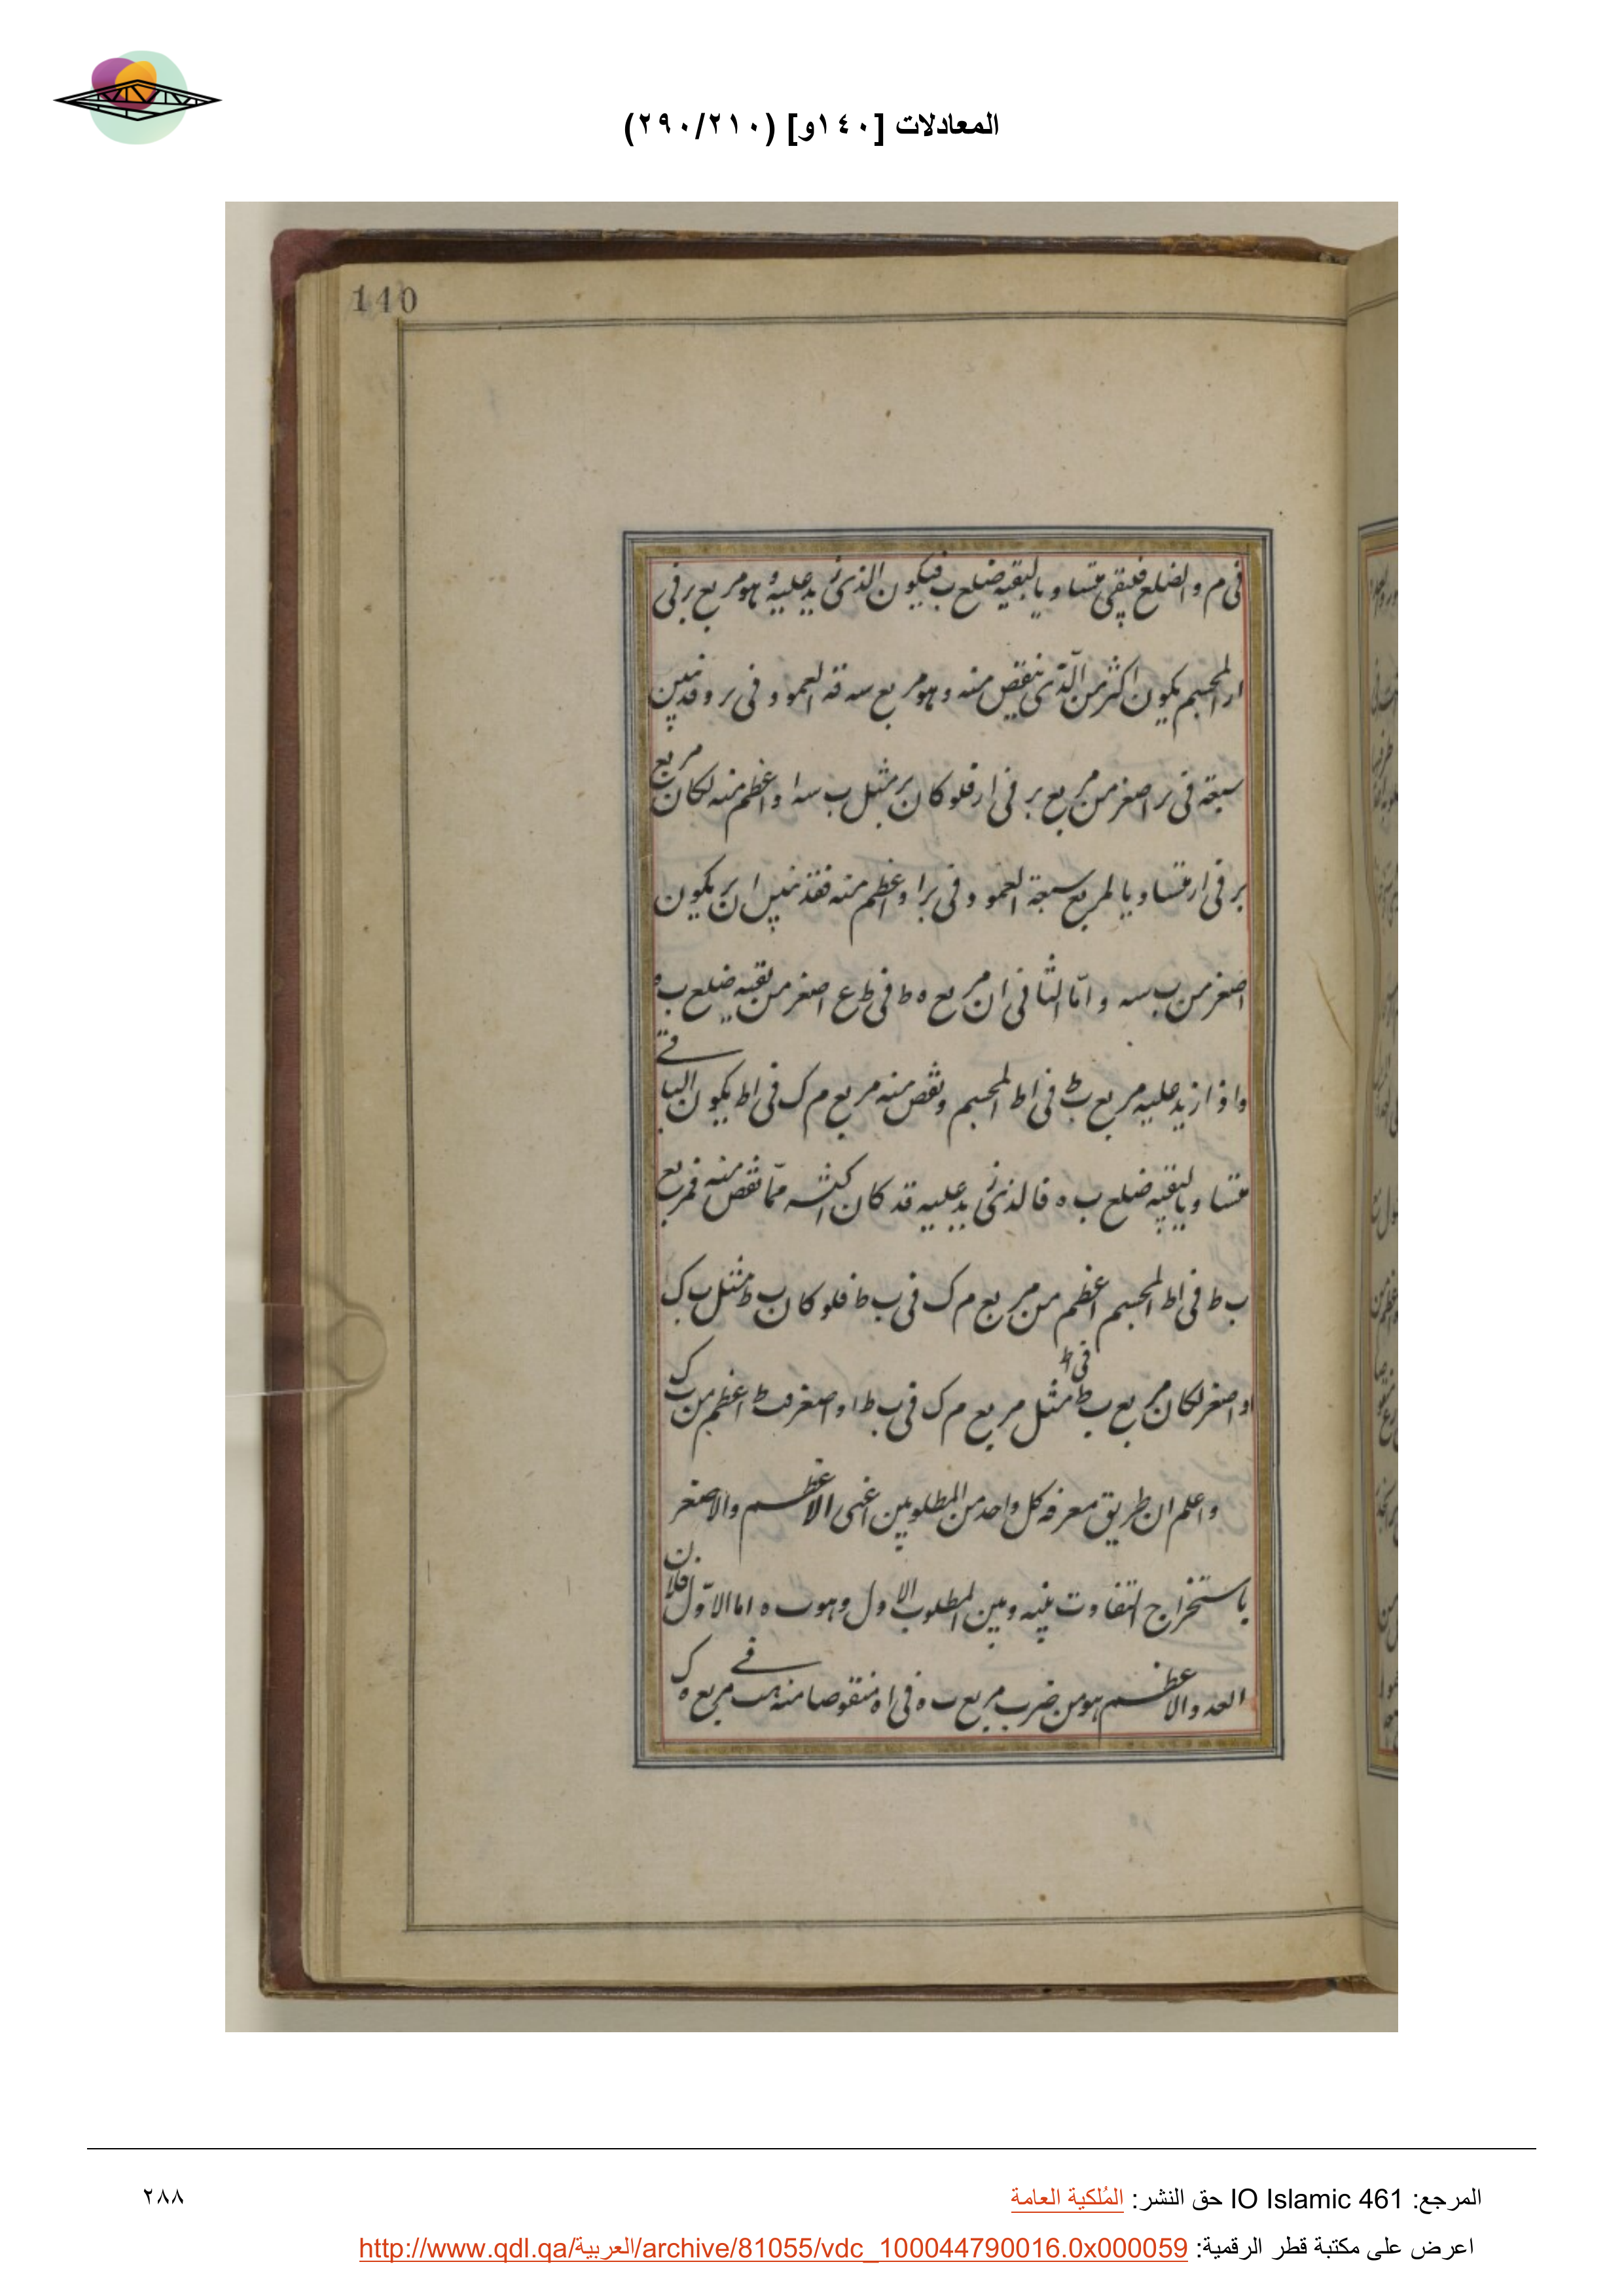 المعادلات [١٤٠و] (٢٩٠/٢١٠)
140
فى م والضلع فليقى متساويا لبقيه ضلع ب فيكون الذى زيد عليه وهو مربع ب ر فى
ار المجسم يكون اكثر من الذى ينقص منه وهو مربع سه قه العمود فى ب ر وقد تبين
فى ب ر اصغر من مربع ب ر فى ار فلو كان ب ر مثل ب سه او اعظم منه لكان مربع
ب ر فى ار متساويا لمربع العمود فى ب ر او اعظم منه فقد تبين ان ب ر يكون
اصغر من ب سه واما الثانى ان مربع ه ط فى ط ع اصغر من بقيه ضلع ب ه
واذا زيد عليه مربع ب ط فى اط المجسم ونقص منه مربع م ك فى اط يكون الباقى
متساويا لبقيه ضلع ب ه فالذى زيد عليه قد كان اكثر مما نقص منه فمربع
ب ط فى اط المجسم اعظم من مربع م ك فى ب ط فلو كان ب ط مثل ب ك
او اصغر لكان مربع ب ط فى اط مثل مربع م ك فى ب ط او اصغر فب ط اعظم من ب ك
واعلم ان طريق معرفه كل واحد من المطلوبين اعنى الاعظم والاصغر
باستخراج التفاوت بينه وبين المطلوب الاول وهو ب ه اما الاول فلان
العدد الاعظم هو من ضرب مربع ب ه فى اه منقوصا منه فى مربع ه ك
المرجع: IO Islamic 461 حق النشر: المُلكية العامة
٢٨٨
اعرض على مكتبة قطر الرقمية: http://www.qdl.qa/العربية/archive/81055/vdc_100044790016.0x000059